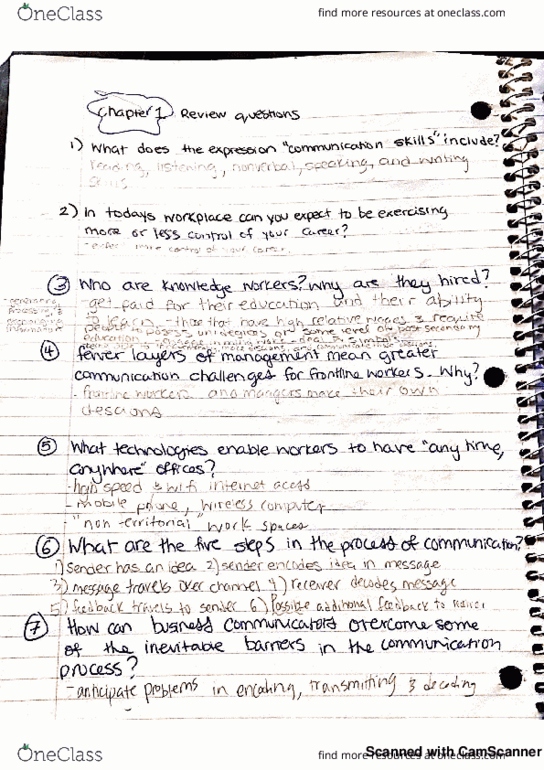 OneClass
find more resources at oneclass.com
Chapter 1 Review questions
1) What does the expression "communication skills" include?
reading, listening, nonverbal, speaking, and writing
skills
2) In todays workplace can you expect to be exercising
more or less control of your career?
more control of your career.
③ Who are knowledge workers? why are they hired?
- get paid for their education and their ability
to learn - those that have high relative wages & require
education
④ fewer layers of management mean greater
communication challenges for frontline workers. Why?
- frontline workers and mangers make their own
descions
⑤ What technologies enable workers to have "any time,
anywhere" offices?
- high speed & wifi internet acess
- mobile phone, wireless computer
"non territorial" work spaces
⑥ What are the five steps in the process of communication?
1) sender has an idea 2) sender encodes idea in message
3) message travels over channel 4) receiver decodes message
5) feedback travels to sender 6) Possible additional feedback to
⑦ How can business communicators overcome some
of the inevitable barriers in the communication
process?
- anticipate problems in encoding, transmitting & decoding
OneClass
find more resources at oneclass.com
Scanned with CamScanner